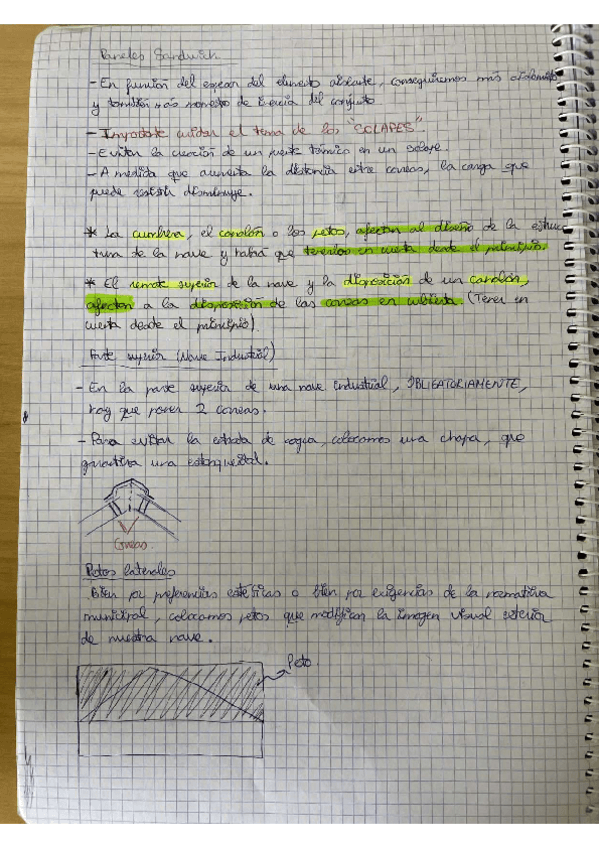 Paneles Sandwich
- En función del espesor del elemento aislante, conseguiremos más aislamiento
y también más momento de inercia del conjunto
- Importante cuidar el tema de los "SOLAPES".
- Evitar la creación de un puente térmico en un solape.
- A medida que aumenta la distancia entre correas, la carga que
puede resistir disminuye.
* La cumbrera, el canalón o los petos, afectan al diseño de la estruc
tura de la nave y habrá que tenerlos en cuenta desde el principio.
* El remate superior de la nave y la disposición de un canalón,
afectan a la disposición de las correas en cubierta. (Tener en
cuenta desde el principio)
Parte superior (Nave Industrial)
- En la parte superior de una nave industrial, OBLIGATORIAMENTE,
hay que poner 2 correas.
- Para evitar la entrada de agua, colocamos una chapa, que
garantiza una estanqueidad.
Correas.
Petos laterales
Bien por preferencias estéticas o bien por exigencias de la normativa
municipal, colocamos petos que modifican la imagen visual exterior
de nuestra nave.
Peto